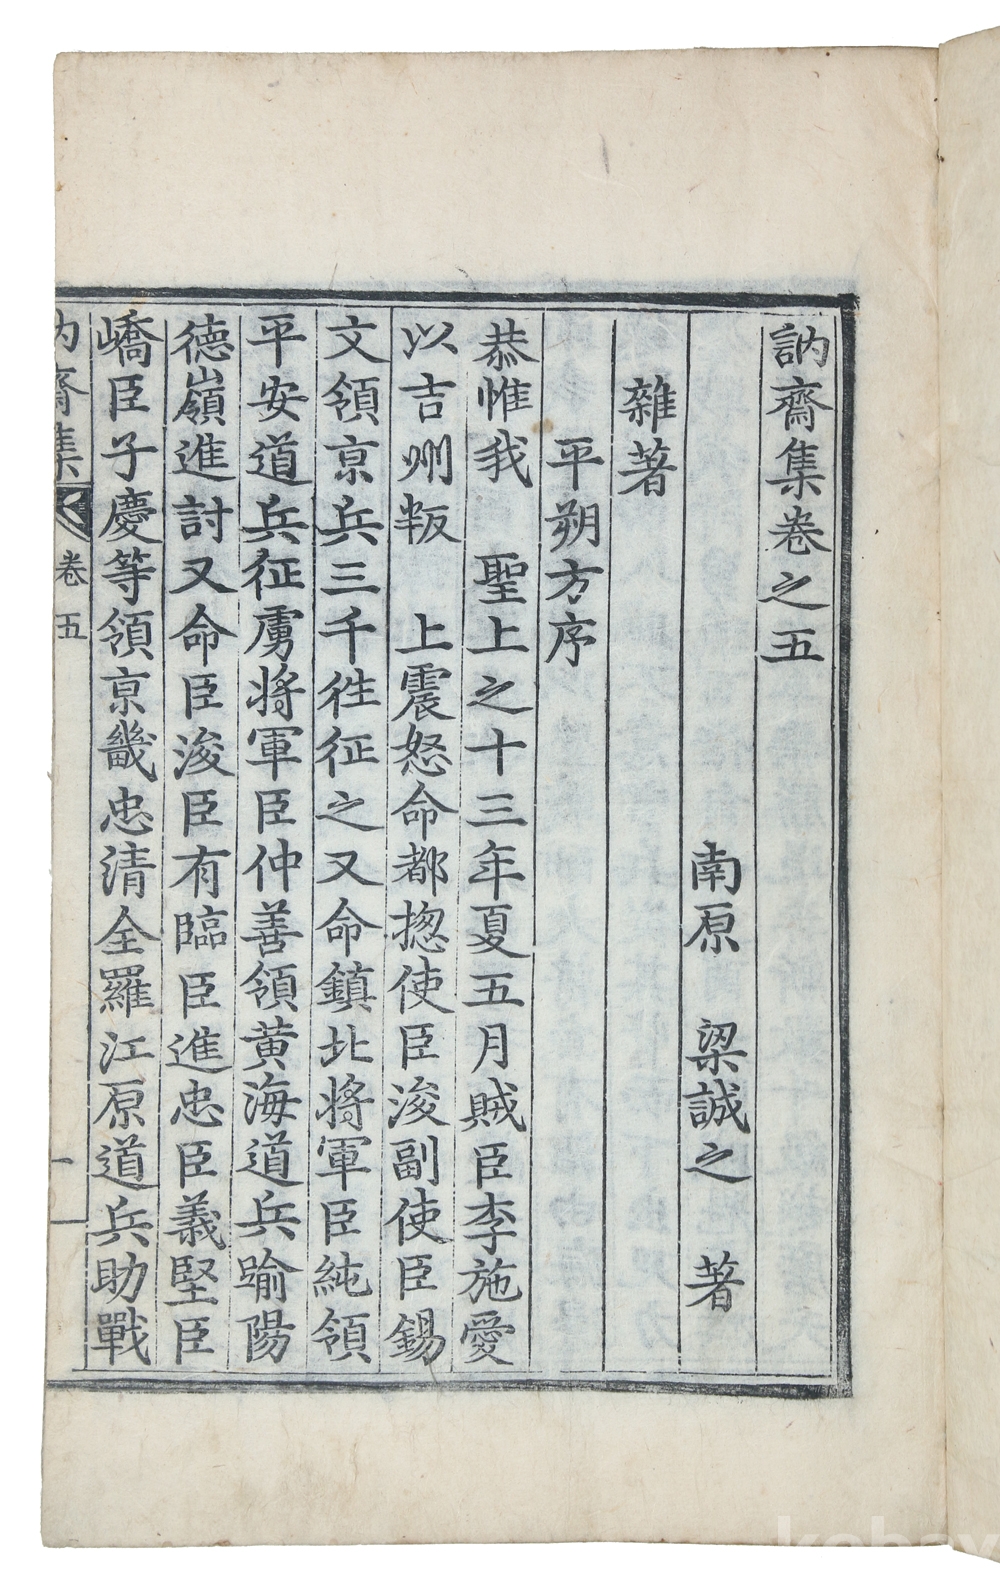 訥齋集卷之五
南原 梁誠之 著
雜著
平朔方序
恭惟我 聖上之十三年夏五月賊臣李施愛
以吉州叛 上震怒命都摠使臣浚副使臣錫
文領京兵三千徃征之又命鎮北將軍臣純領
平安道兵征虜將軍臣仲善領黄海道兵踰陽
德嶺進討又命臣浚臣有臨臣進忠臣義堅臣
嶠臣子慶等領京畿忠清全羅江原道兵助戰
訥齋集 卷五 一